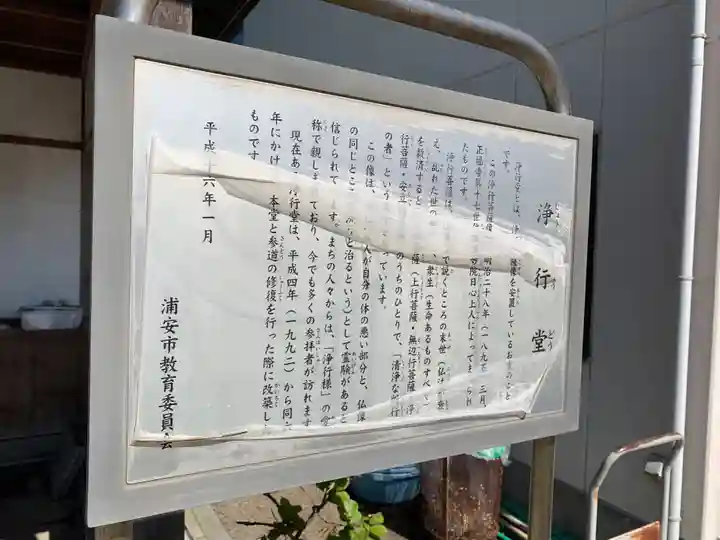 浄行堂
じょう ぎょう どう
浄行堂とは、浄 薩像を安置しているお堂のこと
です。
この浄行菩薩像 明治二十八年（一八九五）三月、
正福寺第十七世 院日心上人によってま られ
たものです。
浄行菩薩は、 で説くところの末世（仏法が衰
え、乱れた世の 、衆生（生命あるものすべて）
を救済すると 薩（上行菩薩・無辺行菩薩・浄
行菩薩・安立 のうちのひとりで、「清浄な 行
の者」という っています。
この像は、 人が自身の体の悪い部分と、仏像
の同じとこ ると治るという）として霊験があると
信じられて す。まちの人々からは、「浄行様」の愛
称で親しま ており、今でも多くの参拝者が訪れます
現在ある浄行堂は、平成四年（一九九二）から同
年にかけ 本堂と参道の修復を行った際に改築し
ものです
平成 六年一月
浦安市教育委員会